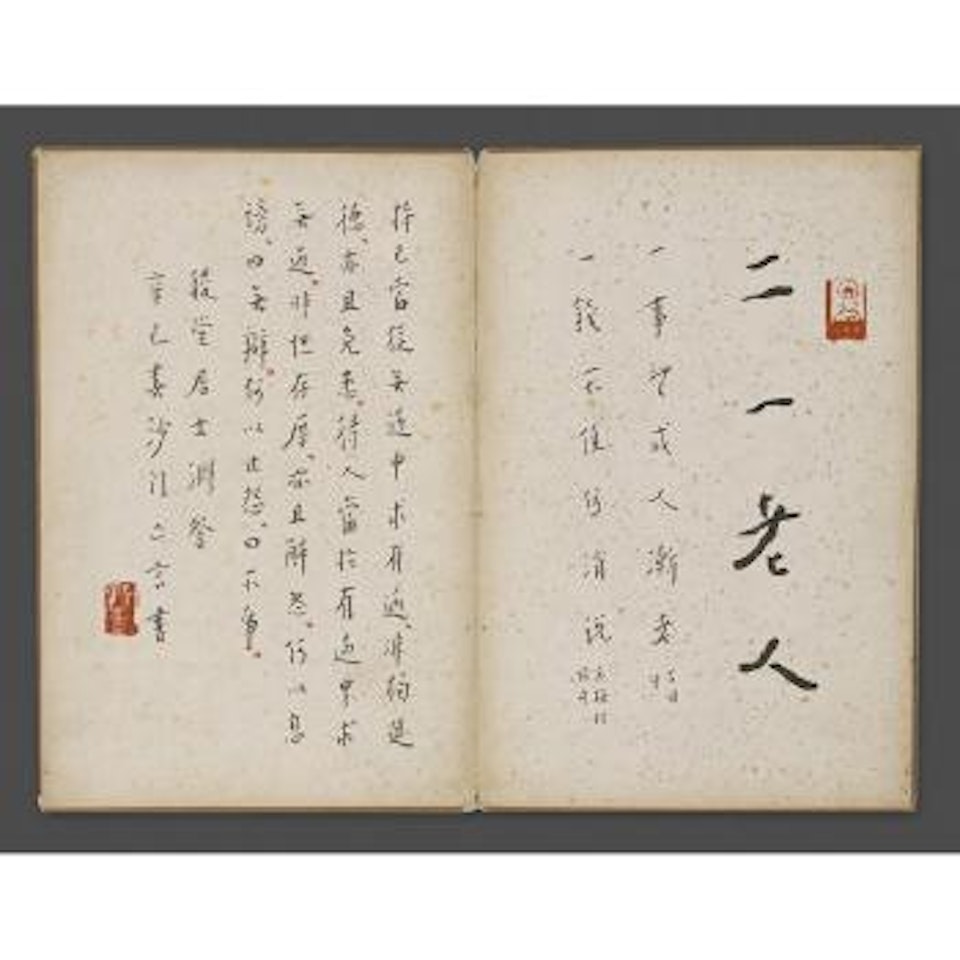 二一老人
一事無成人漸老
一錢不值何消說
持己當從無過中求有過、非獨進
德、亦且免患。待人當於有過中求
無過。非但存厚、亦且解怨。何以息
謗、曰無辯。何以止怨、曰不爭。
堂居士淵鑒
辛巳春沙門亡言書